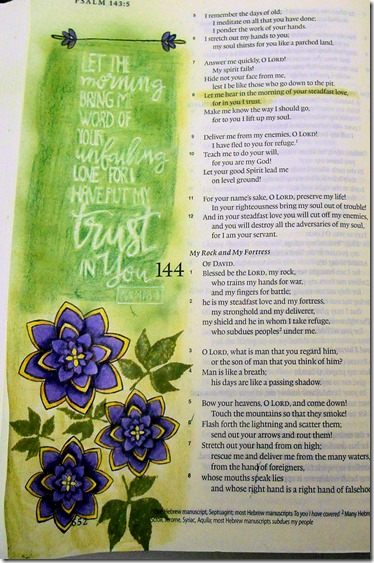 PSALM 143:5
LET THE
morning
BRING ME
WORD OF
YOUR
unfailing
LOVE FOR I
HAVE PUT MY
trust
IN You
PSALM 143:8
5 I remember the days of old;
I meditate on all that you have done;
I ponder the work of your hands.
6 I stretch out my hands to you;
my soul thirsts for you like a parched land.
7 Answer me quickly, O LORD!
My spirit fails!
Hide not your face from me,
lest I be like those who go down to the pit.
8 Let me hear in the morning of your steadfast love,
for in you I trust.
Make me know the way I should go,
for to you I lift up my soul.
9 Deliver me from my enemies, O LORD!
I have fled to you for refuge.¹
10 Teach me to do your will,
for you are my God!
Let your good Spirit lead me
on level ground!
11 For your name's sake, O LORD, preserve my life!
In your righteousness bring my soul out of trouble!
12 And in your steadfast love you will cut off my enemies,
and you will destroy all the adversaries of my soul,
for I am your servant.
My Rock and My Fortress
144 OF DAVID.
1 Blessed be the LORD, my rock,
who trains my hands for war,
and my fingers for battle;
2 he is my steadfast love and my fortress,
my stronghold and my deliverer,
my shield and he in whom I take refuge,
who subdues peoples² under me.
3 O LORD, what is man that you regard him,
or the son of man that you think of him?
4 Man is like a breath;
his days are like a passing shadow.
5 Bow your heavens, O LORD, and come down!
Touch the mountains so that they smoke!
6 Flash forth the lightning and scatter them;
send out your arrows and rout them!
7 Stretch out your hand from on high;
rescue me and deliver me from the many waters,
from the hand of foreigners,
8 whose mouths speak lies
and whose right hand is a right hand of falsehoo
Hebrew manuscript, Septuagint; most Hebrew manuscripts To you I have covered ² Many Hebrew
Scroll, Jerome, Syriac, Aquila; most Hebrew manuscripts subdues my people
652